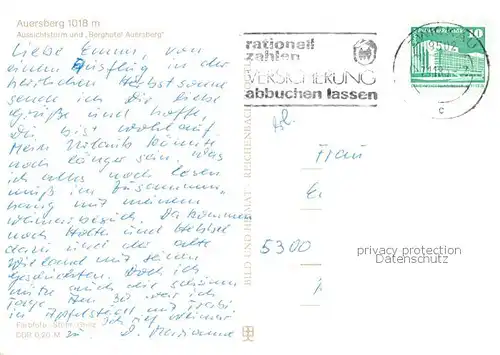 Auersberg 1018 m
Aussichtsturm und „Berghotel Auersberg"
Liebe Emmi, von
einem Ausflug in der
herbstlichen Herbstsonne
senden ich Dir liebe
Grüße und hoffe,
Du bist wohlauf.
Mein Urlaub könnte
noch länger sein, was
ich alles noch lesen
muß im Zusammen-
hang mit meinem
Da kommen
noch Holtei und Hebbel
dazu und der alte
Wieland mit seinen
Geschichten. Doch ich
nütze auch die schönen
Tage. Am 30. war ich
in Apfelstädt mit
D. Marianne
Farbfoto:
COR 0,20 M
BILD UND HEIMAT REICHENBACH
rationell
zahlen
VERSICHERUNG
abbuchen lassen
ZWICKAU
c
10
Abs.
Frau
5300
privacy protection
Datenschutz